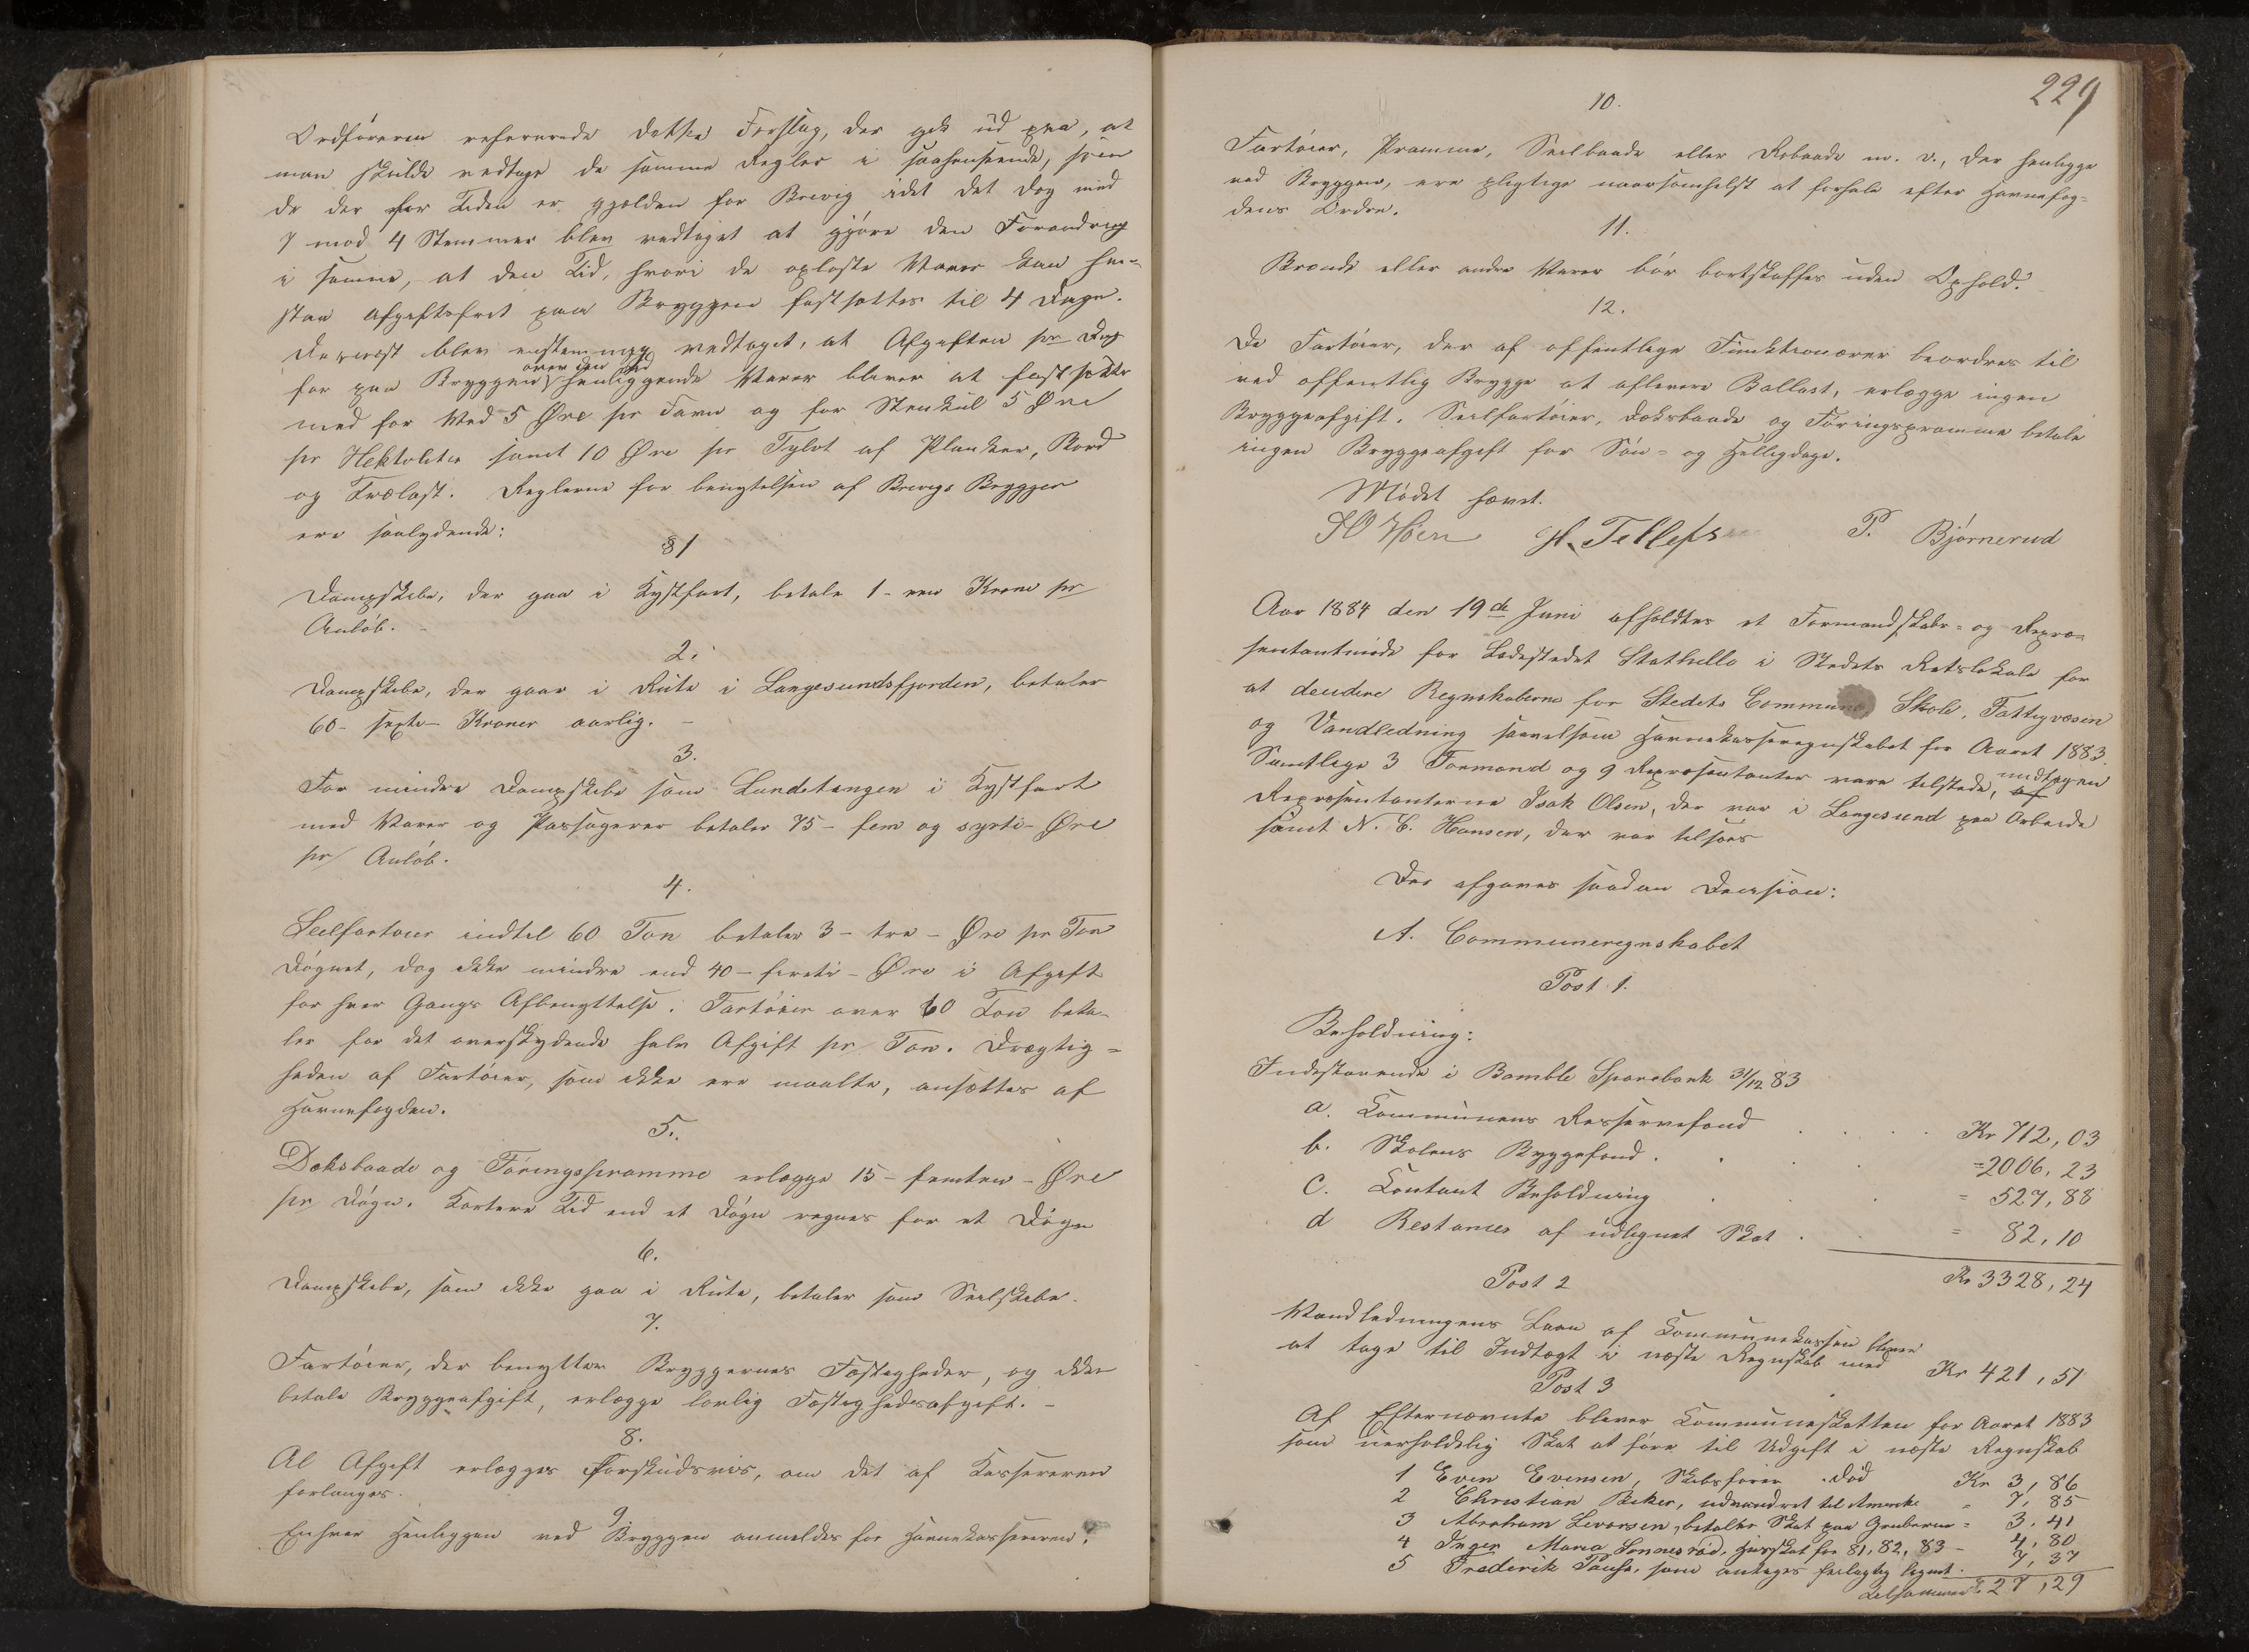 Ordføreren refererede dette Forslag, der gik ud paa, at
man skulde vedtage de samme Regler i saahenseende, som
de der for Tiden er gjælden for Brevig idet det dog med
7 mod 4 Stemmer blev vedtaget at gjøre den Forandring
i samme, at den Tid, hvori de oploste Varer kan hen-
staa afgiftsfrit paa Bryggen fastsættes til 4 Dage.
Dernæst blev enstemmig vedtaget, at Afgiften pr Dag
over den Tid
for paa Bryggen henliggende Varer bliver at fastsætte
med for Ved 5 Øre pr Favn og for Stenkul 5 Øre
pr Hektoliter samt 10 Øre pr Tylvt af Planker, Bord
og Trælast. Reglerne for benyttelsen af Brevigs Brygger
ere saalydende:
§1
Dampskibe, der gaa i Kystfart, betale 1 - een Krone pr
Anløb. -
2.
Dampskibe, der gaar i Rute i Langesundsfjorden, betaler
60 - sexti - Kroner aarlig. -
3.
For mindre Dampskibe som Lundetangen i Kystfart
med Varer og Passagerer betaler 75 - fem og sytti - Øre
pr Anløb.
4.
Seilfartøier indtil 60 Ton betaler 3 - tre - Øre pr Ton
Døgnet, dog ikke mindre end 40 - firti - Øre i Afgift
for hver Gangs Afbenyttelse. Fartøier over 60 Ton beta-
ler for det overskydende halv Afgift pr Ton. Drægtig-
heden af Fartøier, som ikke ere maalte, ansættes af
Havnefogden.
5.
Doksbaade og Føringspramme erlægge 15 - femten - Øre
pr Døgn. Kortere Tid end et Døgn regnes for et Døgn
6.
Dampskibe, som ikke gaa i Rute, betaler som Seilskibe.
7.
Fartøier, der benytter Bryggernes Fæstigheder, og ikke
betale Bryggeafgift, erlægge lovlig Fæstighedsafgift. -
8.
Al Afgift erlægges Forskudsvis, om det af Kassereren
forlanges.
9.
Enhver Henliggen ved Bryggen anmeldes for Havnekassereren.
229
10.
Fartøier, Pramme, Seilbaade eller Robaade m. v., der henligge
ved Bryggen, ere pligtige naarsomhelst at forhale efter Havnefog-
dens Ordre.
11.
Brænde eller andre Varer bør bortskaffes uden Ophold.
12.
De Fartøier, der af offentlige Funktionærer beordres til
ved offentlig Brygge at aflevere Ballast, erlægge ingen
Bryggeafgift. Seilfartøier, Doksbaade og Føringspramme betale
ingen Bryggeafgift for Søn- og Helligdage.
Mødet hævet.
H. Tellefsen P. Bjørnerud
Aar 1884 den 19de Juni afholdtes et Formandskabs- og Repræ-
sentantmøde for Ladestedet Stathelle i Stedets Retslokale for
at decidere Regnskaberne for Stedets Commune, Skole, Fattigvæsen
og Vandledning saavelsom Havnekasseregnskabet for Aaret 1883.
Samtlige 3 Formænd og 9 Repræsentanter vare tilstede, undtagen
Repræsentanterne Isak Olsen, der var i Langesund paa Arbeide
samt N. C. Hansen, der var tilsøes
Der afgaves saadan Decision:
A. Communeregnskabet
Post 1.
Beholdning:
Indestaaende i Bamble Sparebank 31/12 83
a. Kommunens Reservefond . . . . Kr 712,03
b. Skolens Byggefond . . . . = 2006,23
c. Kontant Beholdning . . . = 527,88
d Restancer af udlignet Skat . . = 82,10
Kr 3328,24
Post 2
Vandledningens Laan af Kommunekassen bliver
at tage til Indtægt i næste Regnskab med Kr 421,51
Post 3
Af Efternævnte bliver Kommuneskatten for Aaret 1883
som uerholdelig Skat at føre til Udgift i næste Regnskab
1 Even Evensen, Skibsfører. død Kr 3,86
2 Christian Beker, udvandret til Amerika " 7,85
3 Abraham Levorsen, betalte Skat paa Gruberne = 3.41
4 Inger Maria Sonnesrød, Husskat for 81, 82, 83 - 4,80
5 Frederik Pause, som antages feilagtig lignet. 7,37
Tilsammen Kr 27,29